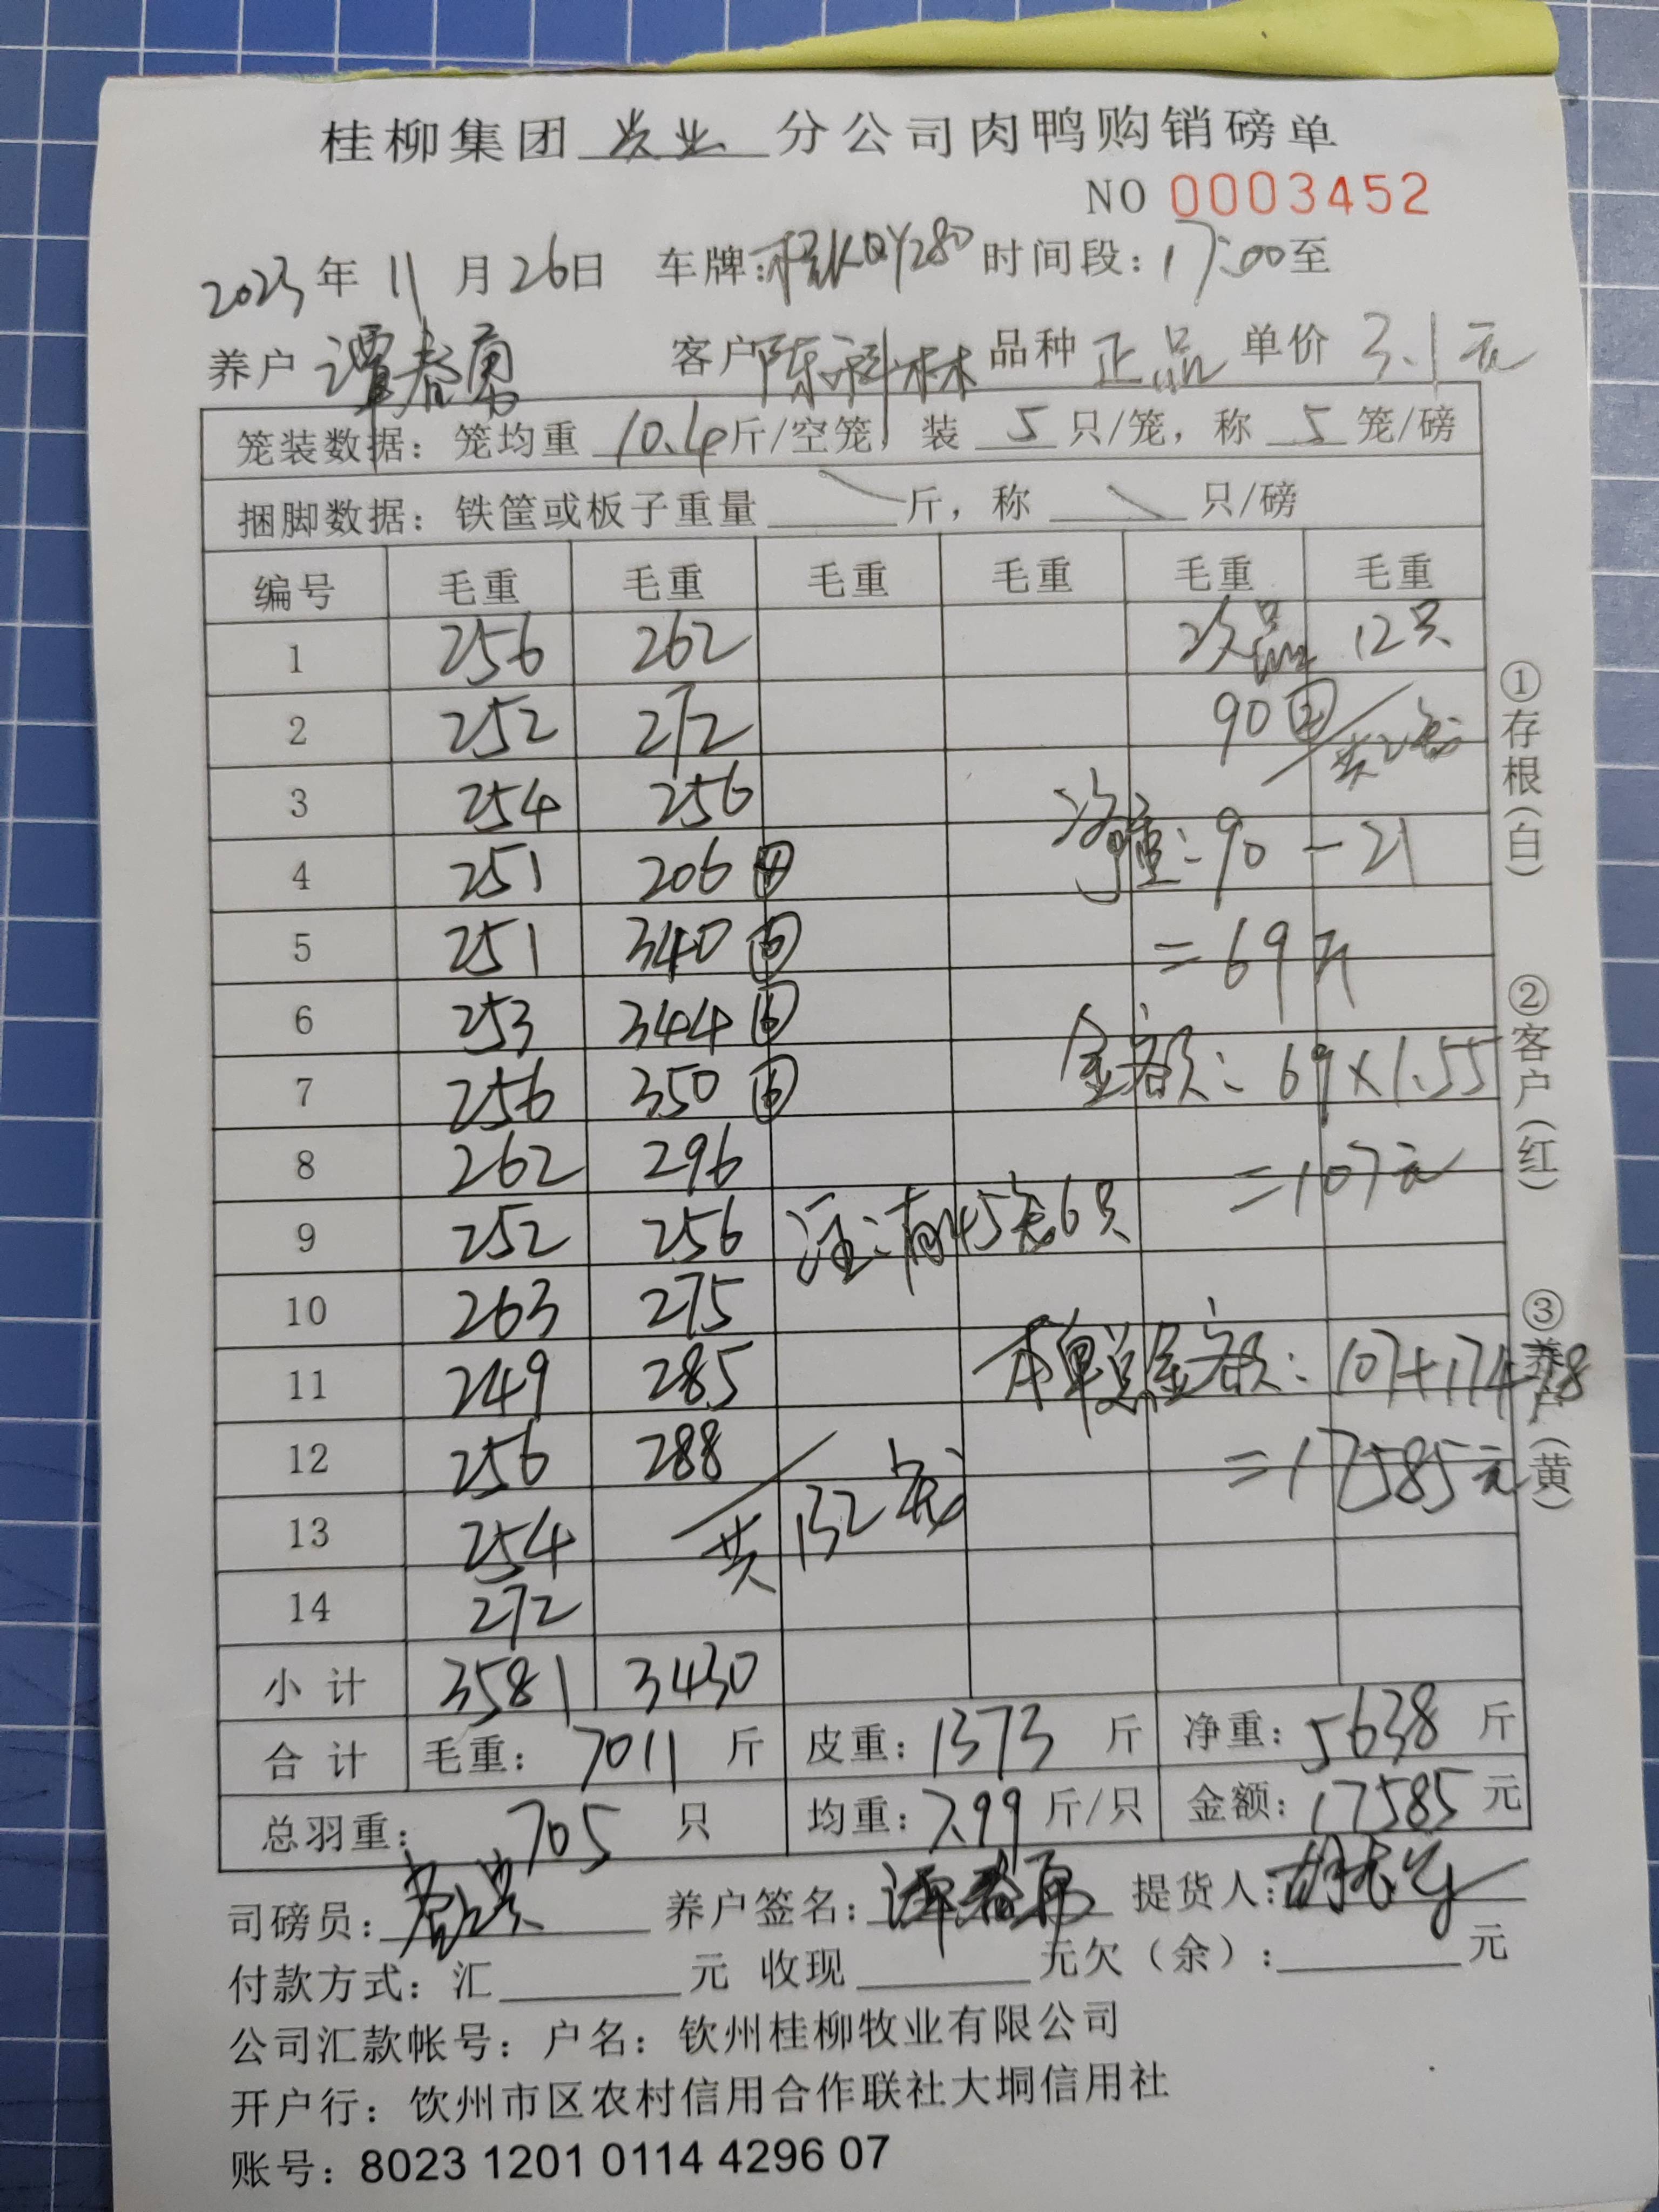 桂柳集团 农业 分公司肉鸭购销磅单
NO 0003452
2023年 11月26日 车牌: QY280 时间段:17:00至
养户 谭春勇 客户 陈科林 品种 正品 单价 3.1元
笼装数据:笼均重 10.4斤/空笼,装 5 只/笼,称 5 笼/磅
捆脚数据:铁筐或板子重量 \ 斤,称 \ 只/磅
编号 毛重 毛重 毛重 毛重 毛重 毛重
1 256 262 次品 12只
2 252 272 90② 共2笼
3 254 256
4 251 206④ 净重:90-21
5 251 340⑥ =69斤
6 253 344⑥
7 256 350⑥ 金额:69×1.55
8 262 296 =107元
9 252 256 注:有45笼6只
10 263 275
11 249 285 本单总金额:107+17478
12 256 288 =17585元
13 254 共132笼
14 272
小计 3581 3430
合计 毛重:7011斤 皮重:1373斤 净重:5638斤
总羽重:705只 均重:7.99斤/只 金额:17585元
司磅员: 养户签名:谭春勇 提货人:
付款方式:汇 元 收现 元欠(余): 元
公司汇款帐号:户名:钦州桂柳牧业有限公司
开户行:钦州市区农村信用合作联社大垌信用社
账号:8023 1201 0114 4296 07
①存根(白) ②客户(红) ③养户(黄)